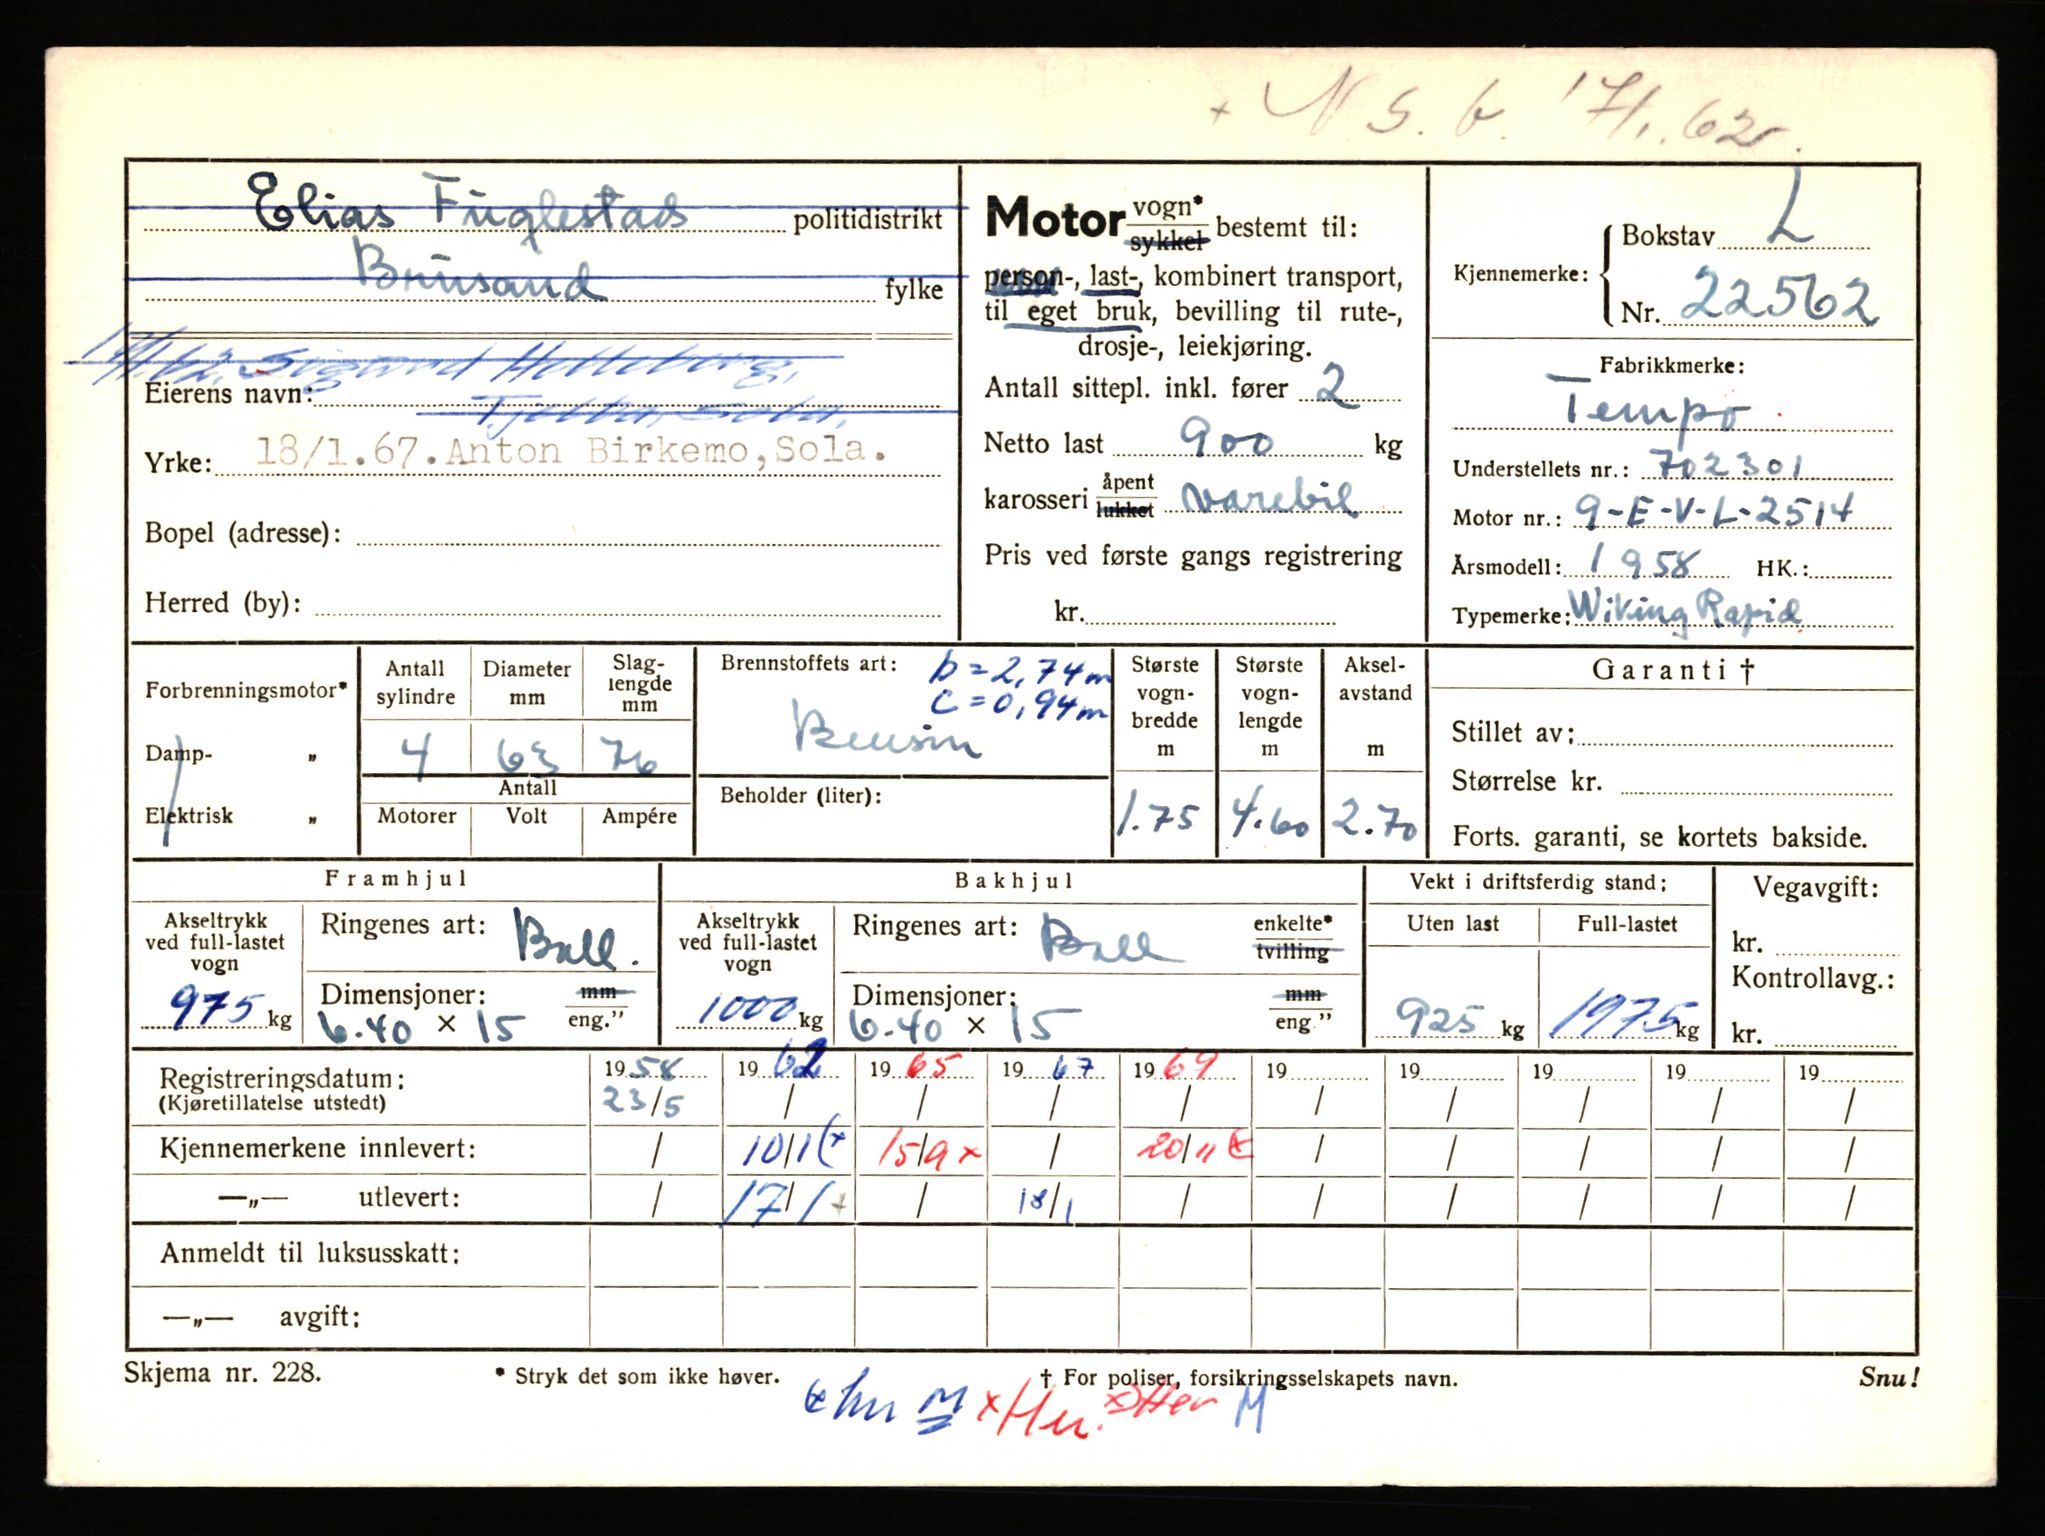 N 5. 6. 17/1. 62.
Elias Fuglestad politidistrikt
Brusand fylke
Sigurd
Eierens navn:
Tjelta, Sola.
Yrke: 18/1.67. Anton Birkemo, Sola.
Bopel (adresse):
Herred (by):
Motor vogn* sykkel bestemt til:
person-, last-, kombinert transport,
til eget bruk, bevilling til rute-,
drosje-, leiekjøring.
Antall sittepl. inkl. fører 2
Netto last 900 kg
karosseri åpent lukket varebil
Pris ved første gangs registrering
kr.
Kjennemerke: Bokstav L
Nr. 22562
Fabrikkmerke:
Tempo
Understellets nr.: 702301
Motor nr.: 9-E-V-L-2514
Årsmodell: 1958 HK.:
Typemerke: Wiking Rapid
Forbrenningsmotor*
Damp- „
Elektrisk „
Antall sylindre 4
Diameter mm 63
Slag-lengde mm 76
Antall
Motorer Volt Ampére
Brennstoffets art: b = 2,74 m
c = 0,94 m
Bensin
Beholder (liter):
Største vogn-bredde m 1.75
Største vogn-lengde m 4.60
Aksel-avstand m 2.70
Garanti †
Stillet av:
Størrelse kr.
Forts. garanti, se kortets bakside.
Framhjul
Akseltrykk ved full-lastet vogn 975 kg
Ringenes art: Ball.
Dimensjoner: mm
6.40 × 15 eng."
Bakhjul
Akseltrykk ved full-lastet vogn 1000 kg
Ringenes art: Ball enkelte* tvilling
Dimensjoner: mm
6.40 × 15 eng."
Vekt i driftsferdig stand:
Uten last 925 kg
Full-lastet 1975 kg
Vegavgift:
kr.
Kontrollavg.:
kr.
Registreringsdatum: 1958 1962 1965 1967 1969 19 19 19 19 19
(Kjøretillatelse utstedt) 23/5 / / / / / / / / /
Kjennemerkene innlevert: / 10/1 (x 15/9 x / 20/11 / / / / /
—„— utlevert: / 17/1 + / 18/1 / / / / / /
Anmeldt til luksusskatt:
—„— avgift:
Skjema nr. 228. * Stryk det som ikke høver. † For poliser, forsikringsselskapets navn. Snu!
M x M